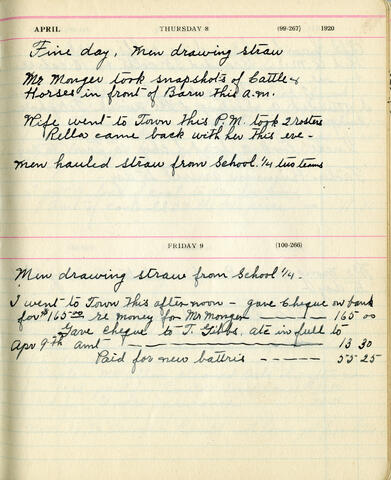 APRIL THURSDAY 8 (99-267) 1920
Fine day, Men drawing straw
Mr Monger took snapshots of Cattle &
Horses in front of Barn this a.m.
Wife went to Town this P.M. took 2 rosters
Rella came back with her this eve -
Men hauled straw from School 1/4 two teams
FRIDAY 9 (100-266)
Men drawing straw from School 1/4.
I went to Town this afternoon - gave Cheque on bank
for $165.00 re money for Mr Monger 165 00
Gave cheque to T. Gibbs, in full to
Apr 9th amt 13 30
Paid for new 55 25